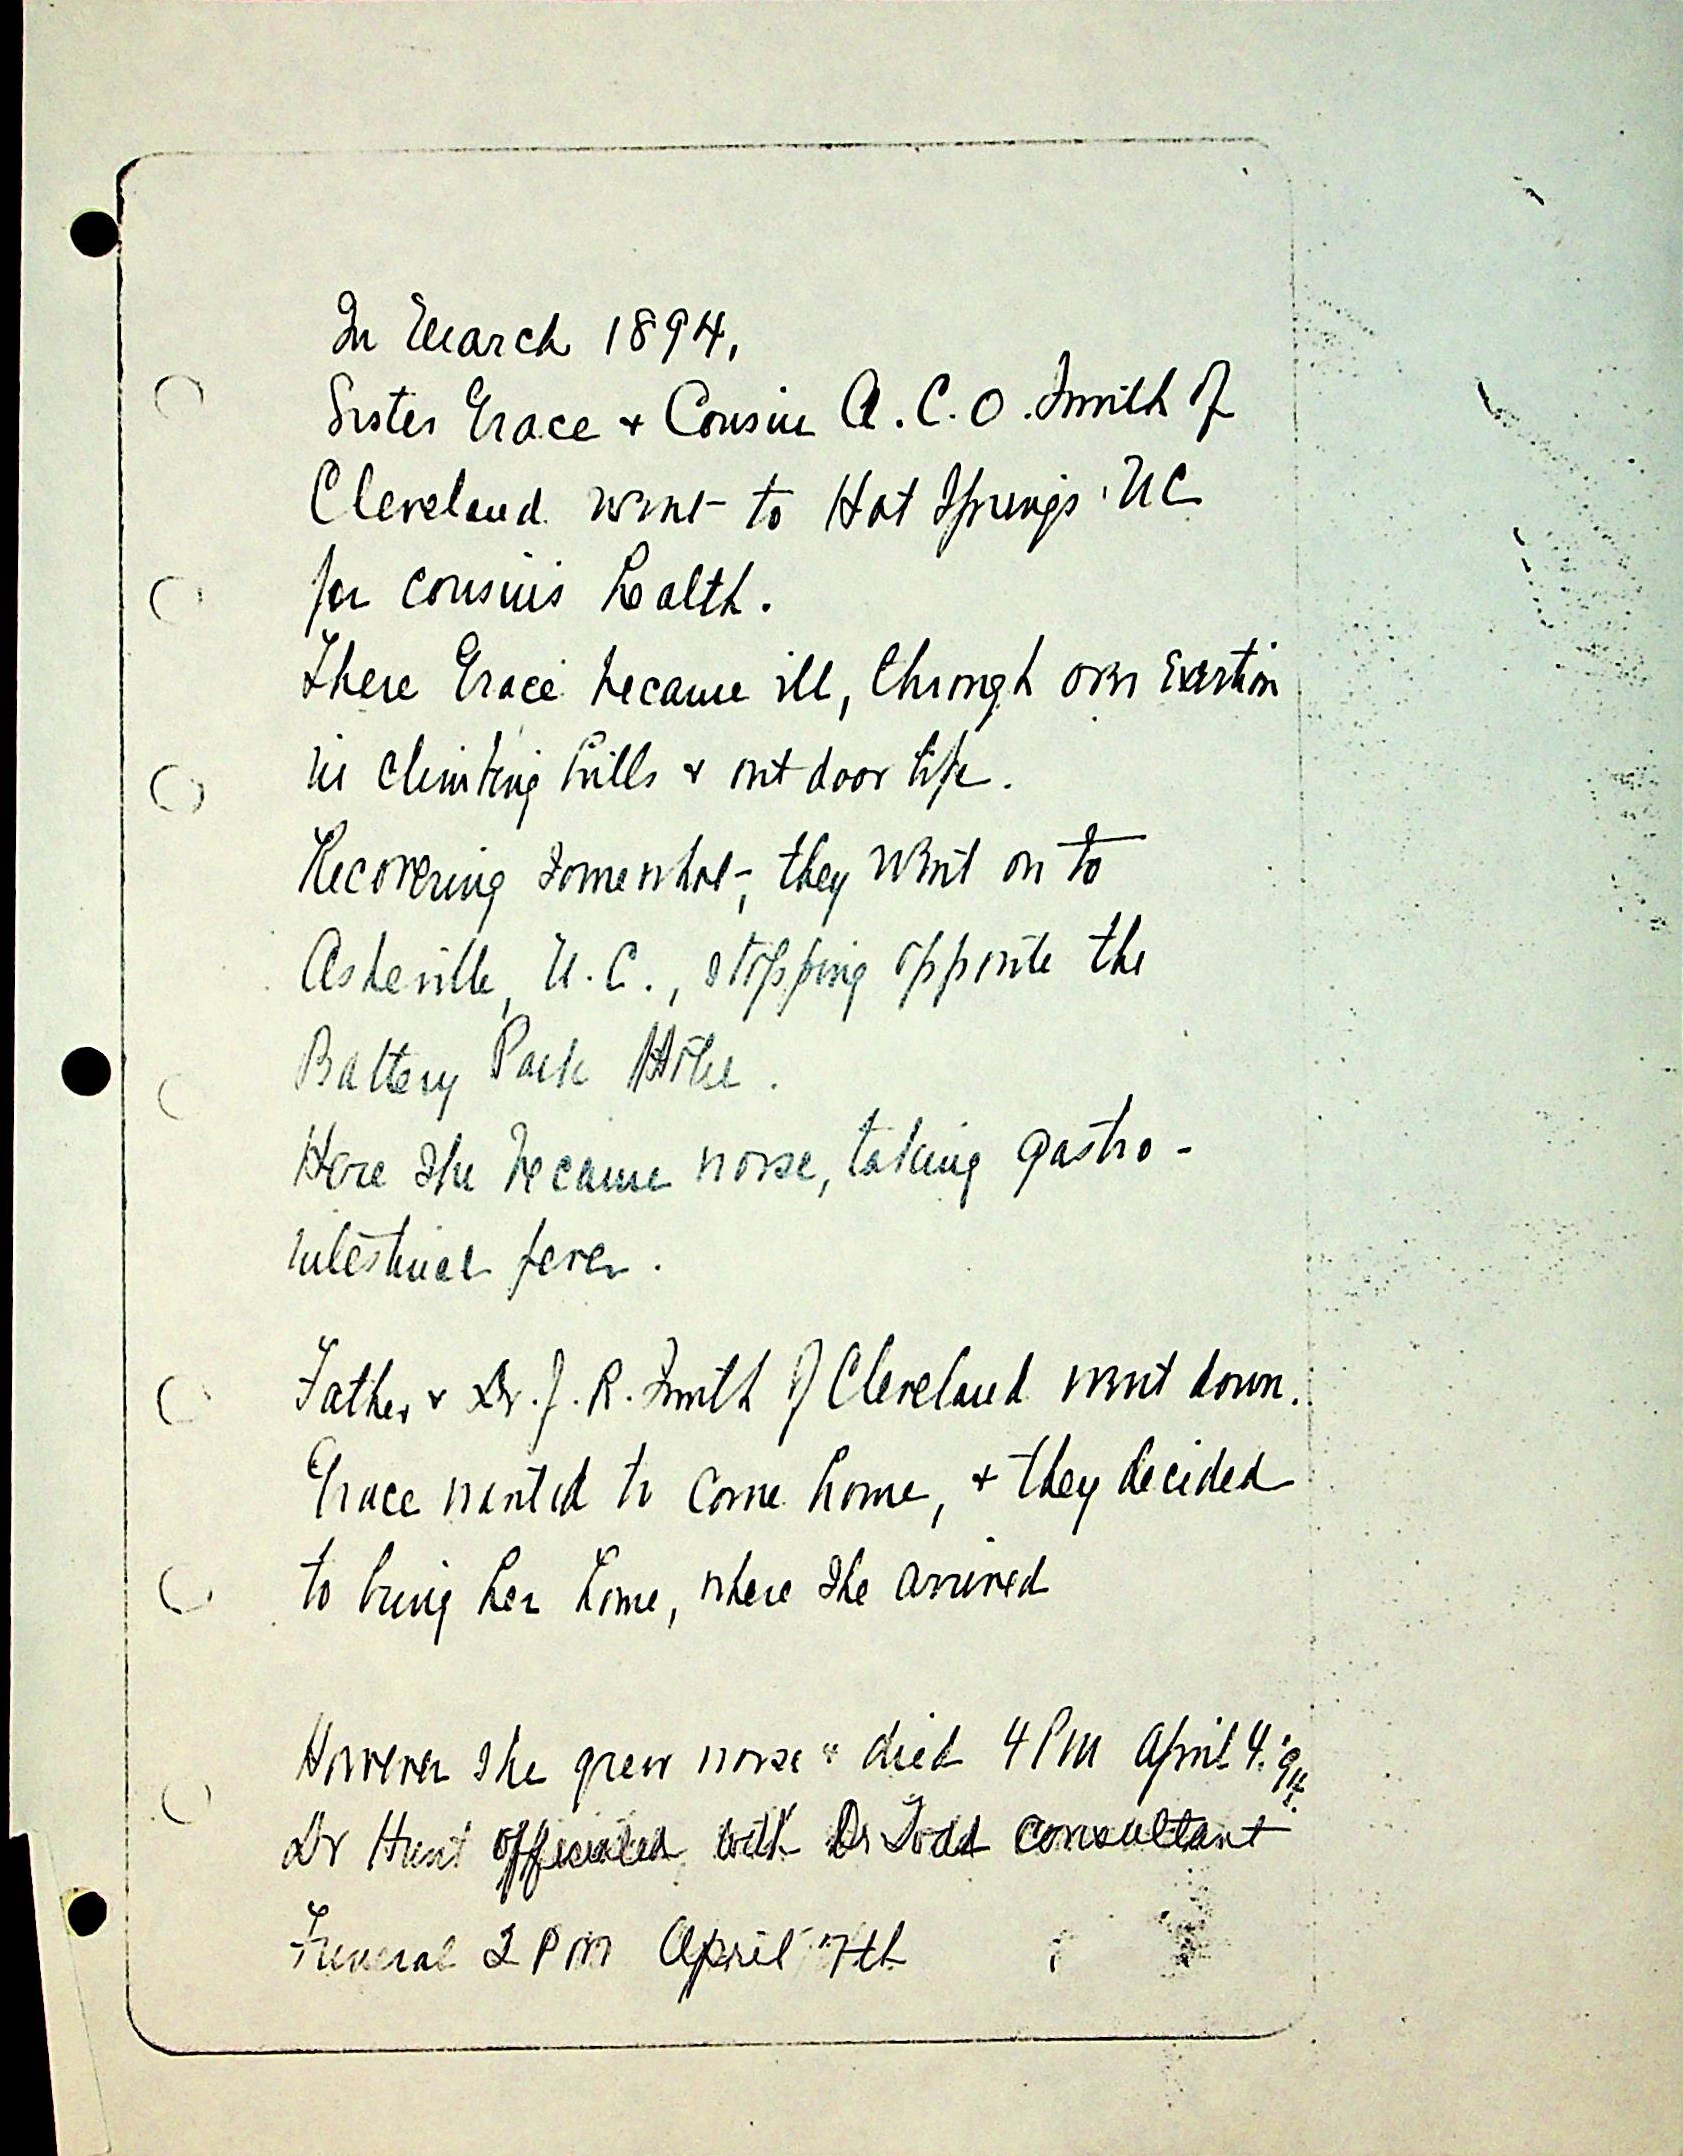 In March 1894,
Sister Grace + Cousin A. C. O. Smith of
Cleveland went to Hot Springs NC
for cousins health.
There Grace became ill, through over exertion
in climbing hills + out door life.
Recovering somewhat, they went on to
Asheville, N. C., stopping opposite the
Battery Park Hotel.
Here she became worse, taking gastro-
intestinal fever.
Father + Dr. J. R. Smith of Cleveland went down.
Grace wanted to come home, + they decided
to bring her home, where she arrived
However she grew worse + died 4 PM April 4. '94.
Dr Hunt officiated with Dr Todd consultant
Funeral 2 PM April 7th